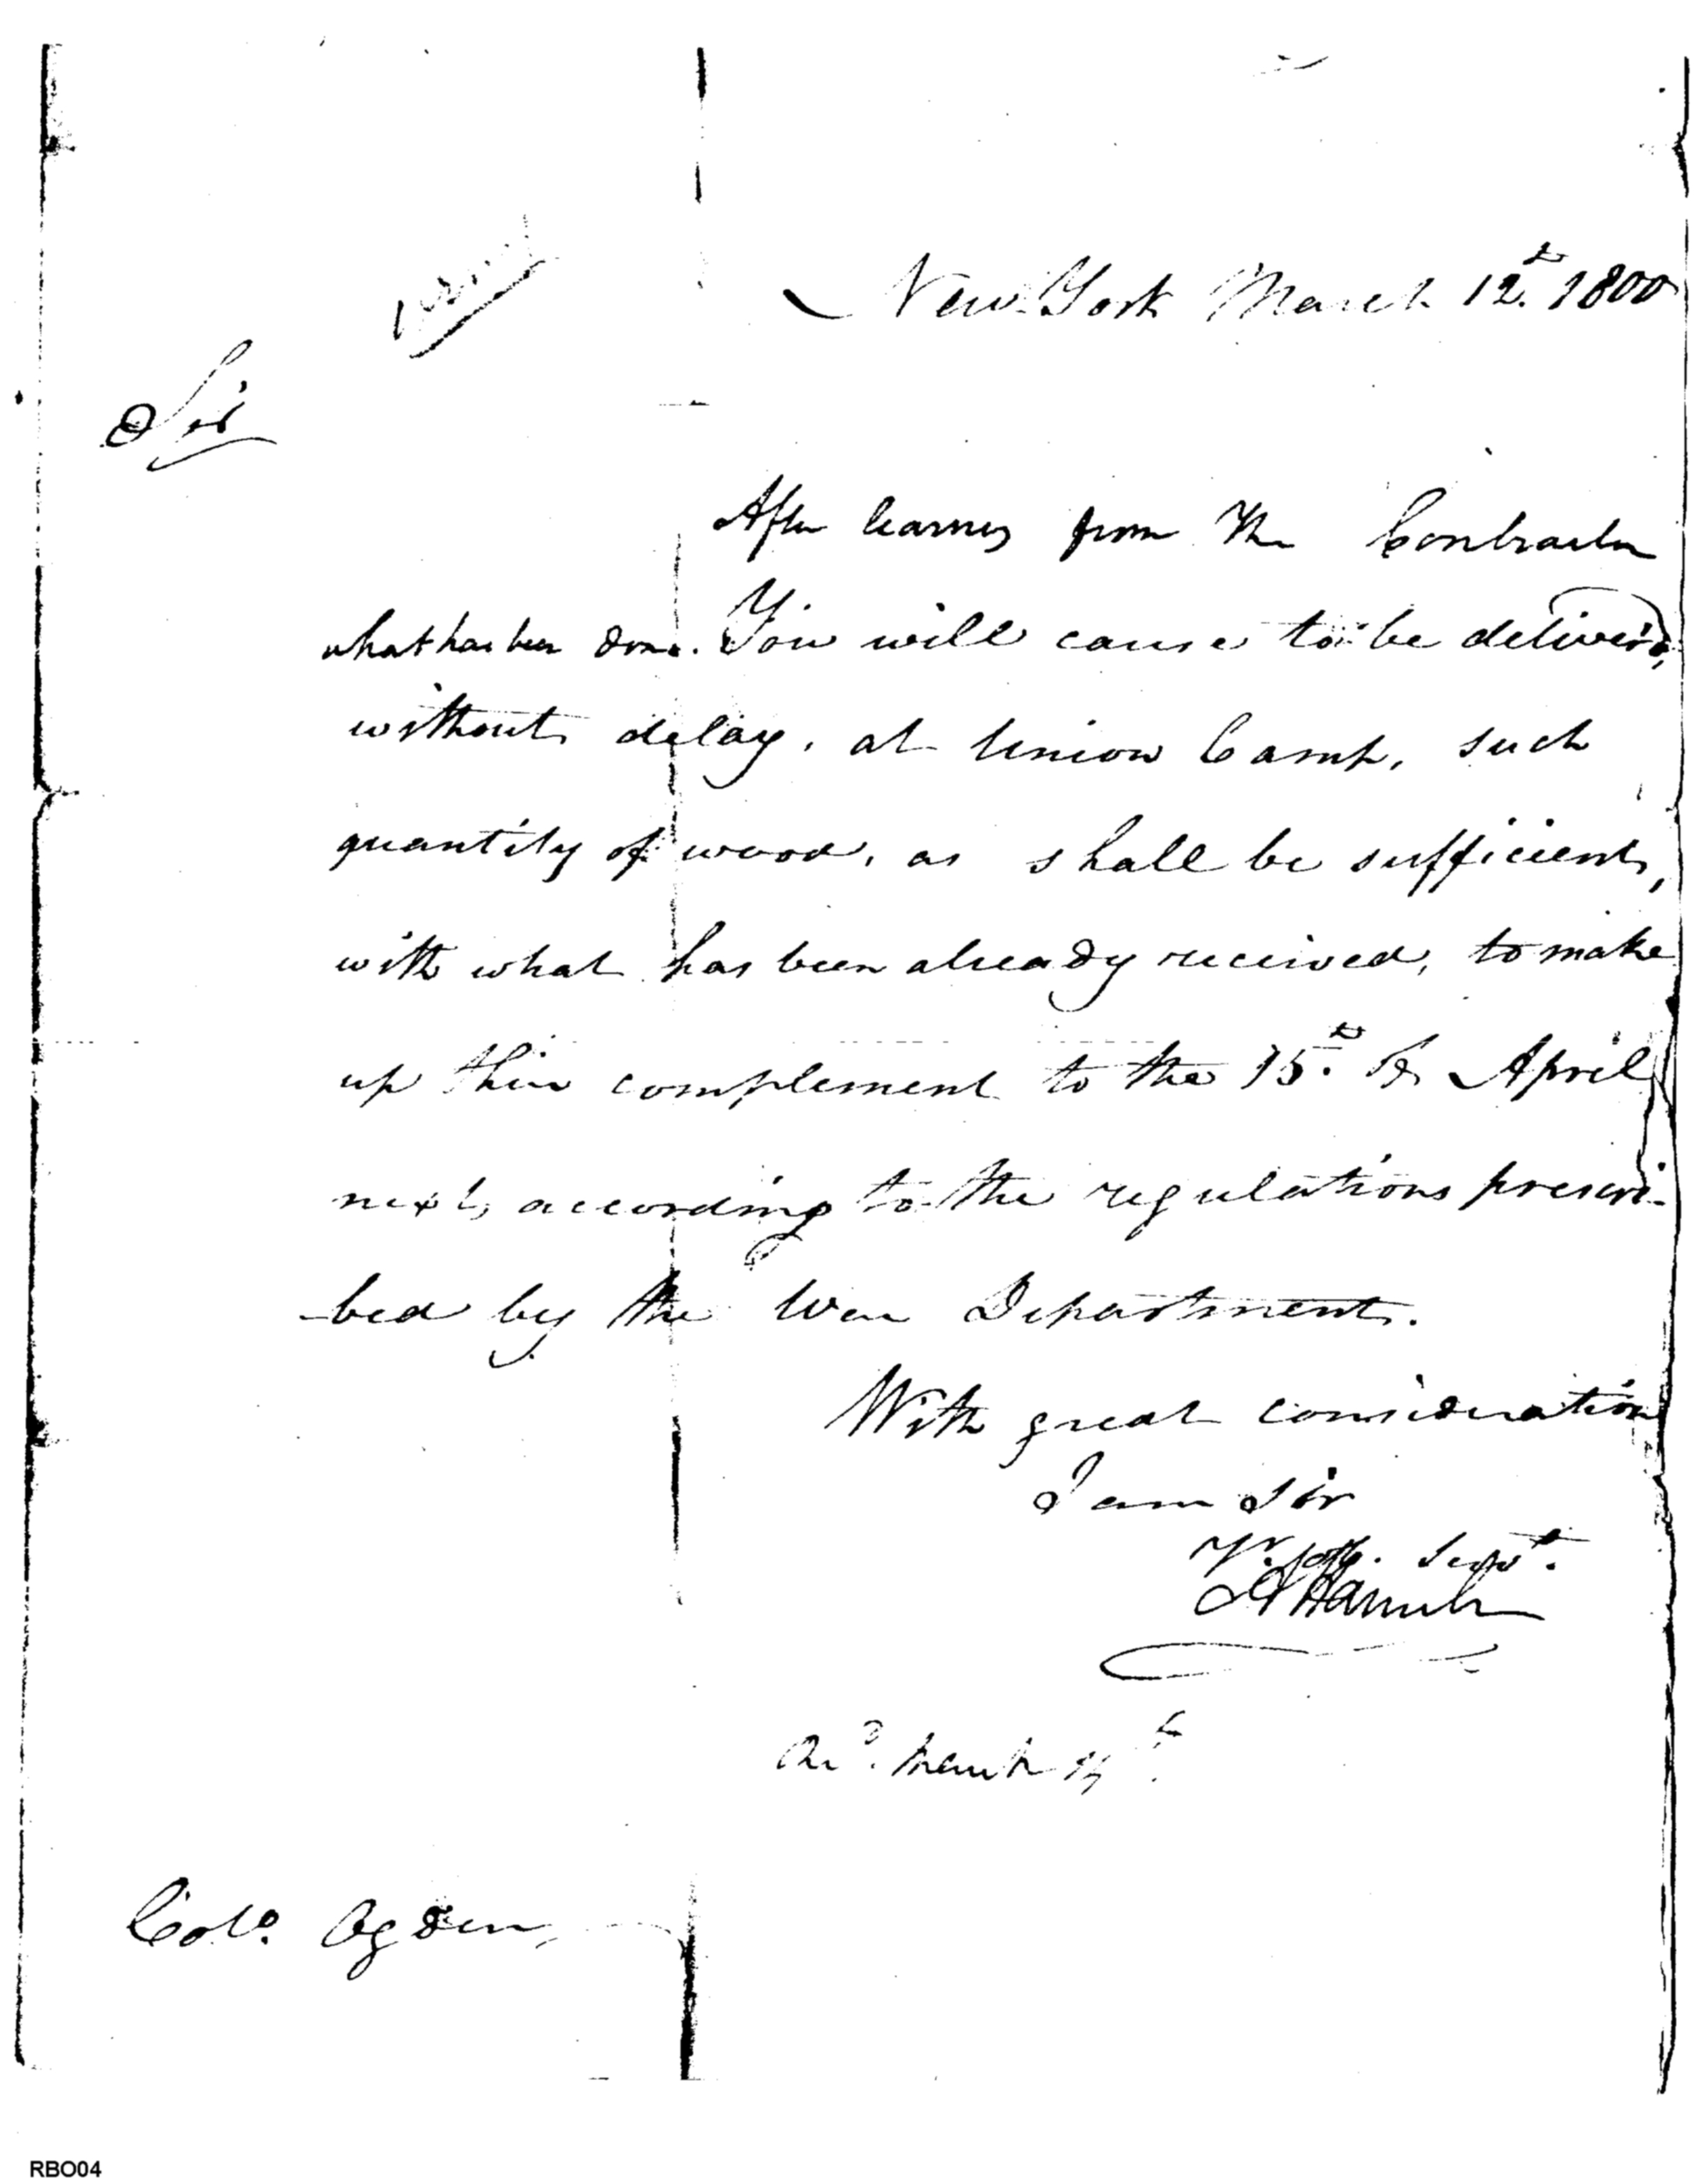 New York March 12th. 1800
Sir
After learning from the Contractor
what has been done. You will cause to be deliver'd,
without delay, at Union Camp, such
quantity of wood, as shall be sufficient,
with what has been already received, to make
up their complement to the 15th. of April
next, according to the regulations prescri-
-bed by the War Department.
With great consideration
I am Sir
Yr. Obt. Servt.
A Hamilton
March 14th.
Colo. Ogden,
RBO04